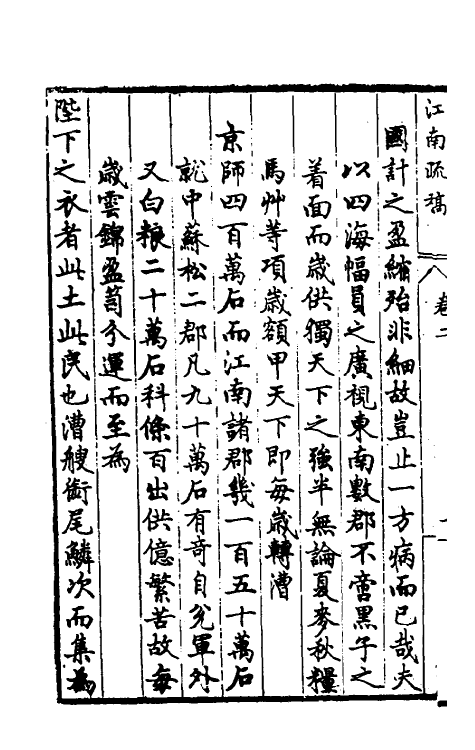 江南疏稿
卷二
國計之盈縮殆非細故豈止一方病而已哉夫
以四海幅員之廣視東南數郡不啻黑子之
着面而歲供獨天下之強半無論夏麥秋糧
馬艸等項歲額甲天下即每歲轉漕
京師四百萬石而江南諸郡幾一百五十萬石
就中蘇松二郡凡九十萬石有奇自兌軍外
又白粮二十萬石科條百出供億繁苦故每
歲雲錦盈笥分運而至為
陛下之衣者此土此民也漕艘銜尾鱗次而集為